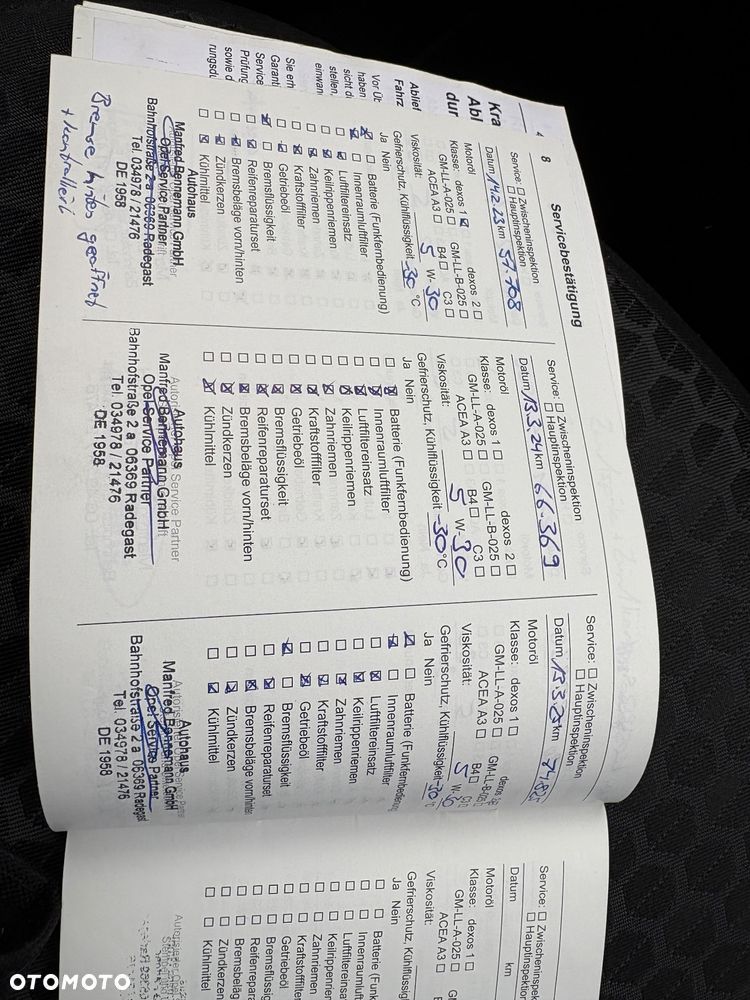 Kra
Abl
dur
Ablief
Fahrz
Vor Üb
haben
sicht di
stellen,
einwan
Sie erh
Garanti
Service
Prüfung
sowie d
rungsdu
8
Servicebestätigung
Service: □ Zwischeninspektion
□ Hauptinspektion
Datum 14.2.23 km 57.708
Motoröl
Klasse: dexos 1 ☒ dexos 2 □
GM-LL-A-025 □ GM-LL-B-025 □
ACEA A3 □ B4 □ C3 □
Viskosität: 5 W- 30
Gefrierschutz, Kühlflüssigkeit -30 °C
Ja Nein
☒ □ Batterie (Funkfernbedienung)
☒ □ Innenraumluftfilter
□ ☒ Luftfiltereinsatz
□ ☒ Keilrippenriemen
□ ☒ Zahnriemen
□ ☒ Kraftstofffilter
□ ☒ Getriebeöl
☒ □ Bremsflüssigkeit
□ ☒ Reifenreparaturset
□ ☒ Bremsbeläge vorn/hinten
□ ☒ Zündkerzen
□ ☒ Kühlmittel
Autohaus
Manfred Bennemann GmbH
Opel Service Partner
Bahnhofstraße 2 a 06369 Radegast
Tel. 034978 / 21476
DE 1958
Bremse hinten geöffnet
+ kontrolliert
Service: □ Zwischeninspektion
□ Hauptinspektion
Datum 13.3.24 km 66.369
Motoröl
Klasse: dexos 1 □ dexos 2 □
GM-LL-A-025 □ GM-LL-B-025 □
ACEA A3 □ B4 □ C3 □
Viskosität: 5 W- 30
Gefrierschutz, Kühlflüssigkeit -30 °C
Ja Nein
□ ☒ Batterie (Funkfernbedienung)
□ ☒ Innenraumluftfilter
□ ☒ Luftfiltereinsatz
□ ☒ Keilrippenriemen
□ ☒ Zahnriemen
□ ☒ Kraftstofffilter
□ ☒ Getriebeöl
□ ☒ Bremsflüssigkeit
□ ☒ Reifenreparaturset
□ ☒ Bremsbeläge vorn/hinten
□ ☒ Zündkerzen
□ ☒ Kühlmittel
Autohaus
Manfred Bennemann GmbH
Opel Service Partner
Bahnhofstraße 2 a 06369 Radegast
Tel. 034978 / 21476
DE 1958
Service: □ Zwischeninspektion
□ Hauptinspektion
Datum 13.3.25 km
Motoröl
Klasse: dexos 1 □ dexos
GM-LL-A-025 □ GM-LL-B-025
ACEA A3 □ B4 □ C3
Viskosität: 5 W- 30
Gefrierschutz, Kühlflüssigkeit -30 °C
Ja Nein
☒ □ Batterie (Funkfernbedienung
☒ □ Innenraumluftfilter
□ ☒ Luftfiltereinsatz
□ ☒ Keilrippenriemen
□ ☒ Zahnriemen
□ ☒ Kraftstofffilter
□ ☒ Getriebeöl
☒ □ Bremsflüssigkeit
□ ☒ Reifenreparaturset
□ ☒ Bremsbeläge vorn/hinten
□ ☒ Zündkerzen
□ ☒ Kühlmittel
Autohaus
Manfred Bennemann GmbH
Opel Service Partner
Bahnhofstraße 2 a 06369 Radegast
Tel. 034978 / 21476
DE 1958
Service: □ Zwischeninspekt
□ Hauptinspektion
Datum km
Motoröl
Klasse: dexos 1 □
GM-LL-A-025 □ GM-L
ACEA A3 □
Viskosität:
Gefrierschutz, Kühlflüssig
Ja Nein
□ □ Batterie (Funkf
□ □ Innenraumluft
□ □ Luftfiltereinsatz
□ □ Keilrippenriem
□ □ Zahnriemen
□ □ Kraftstofffilter
□ □ Getriebeöl
□ □ Bremsflüssigk
□ □ Reifenreparat
□ □ Bremsbeläge
□ □ Zündkerzen
□ □ Kühlmittel
OTOMOTO